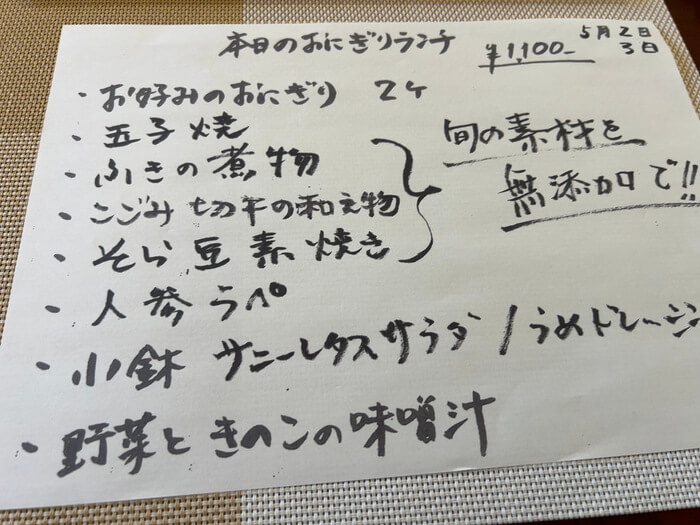 本日のおにぎりランチ ¥1,100- 5月2日
3日
・お好みのおにぎり 2ケ
・玉子焼
・ふきの煮物
・こごみ 切干の和え物
・そら豆素焼き
旬の素材を
無添加で!!
・人参ラペ
・小鉢 サニーレタスサラダ / うめドレッシン
・野菜ときのこの味噌汁